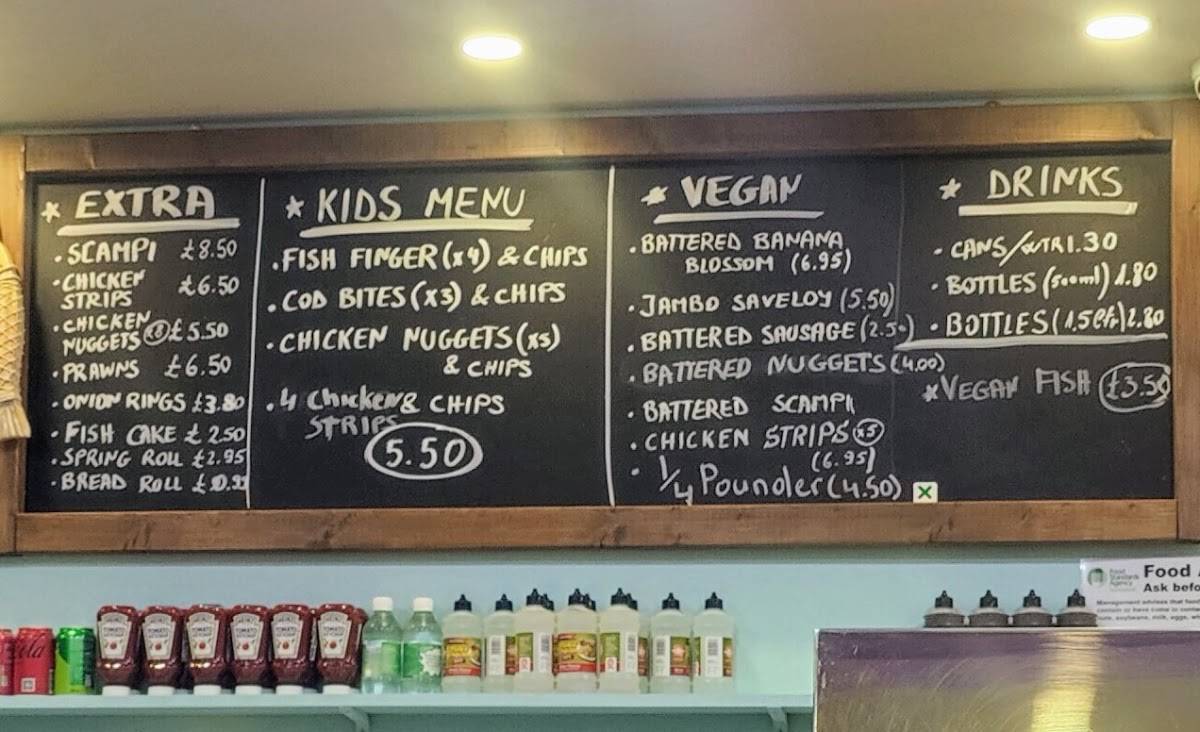 * EXTRA
• SCAMPI £8.50
• CHICKEN
STRIPS £6.50
• CHICKEN
NUGGETS x8 £5.50
• PRAWNS £6.50
• ONION RINGS £3.80
• FISH CAKE £2.50
• SPRING ROLL £2.95
• BREAD ROLL
* KIDS MENU
• FISH FINGER (x4) & CHIPS
• COD BITES (x3) & CHIPS
• CHICKEN NUGGETS (x5)
& CHIPS
• 4 Chicken & CHIPS
STRIPS
5.50
* VEGAN
• BATTERED BANANA
BLOSSOM (6.95)
• JAMBO SAVELOY (5.50)
• BATTERED SAUSAGE (2.50)
• BATTERED NUGGETS (4.00)
• BATTERED SCAMPI
• CHICKEN STRIPS x5
(6.95)
• 1/4 Pounder (4.50)
* DRINKS
• CANS/WTR 1.30
• BOTTLES (500ml) 1.80
• BOTTLES (1.5 ltr) 2.80
* VEGAN FISH £3.50
HEINZ
TOMATO
KETCHUP
Food
Standards
Agency
Food
Ask befo